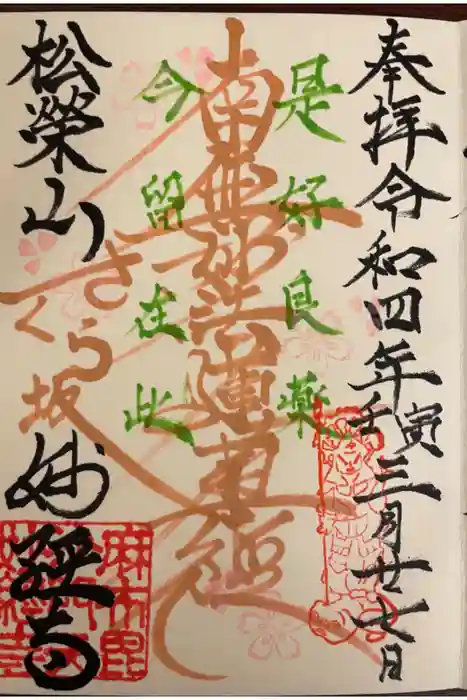 奉拝令和四年壬寅三月廿七日
是好良薬
南無妙法蓮華経
今留在此
さくら坂
松榮山妙經寺